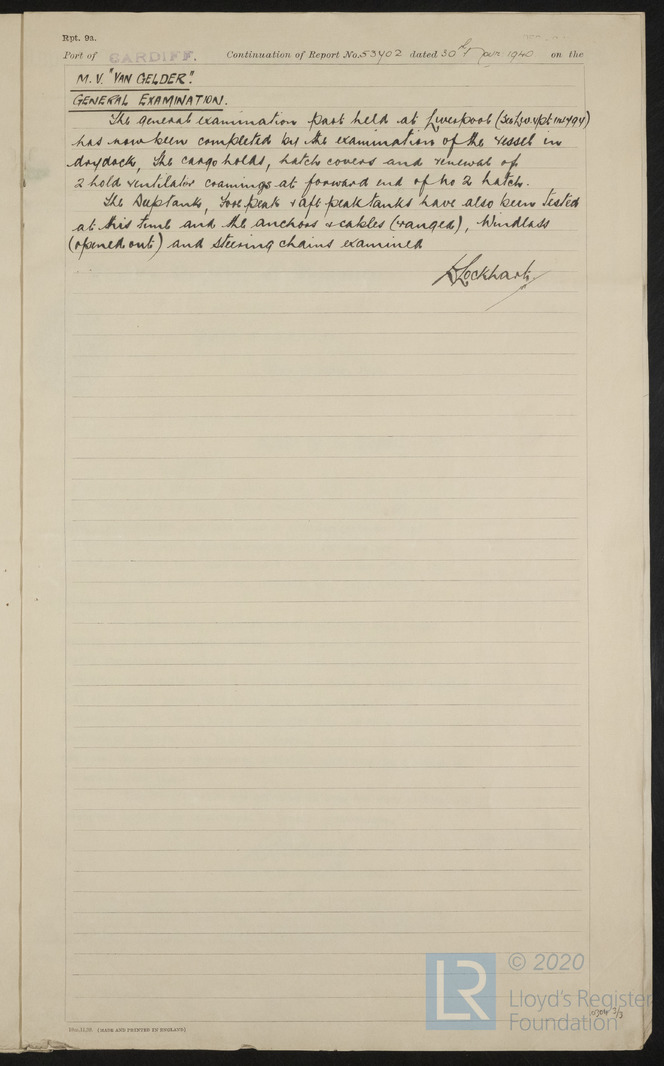 Rpt. 9a.
Port of CARDIFF. Continuation of Report No. 53402 dated 30th Novr 1940 on the
M.V. "VAN GELDER".
GENERAL EXAMINATION.
The general examination part held at Liverpool (See Liv. rpt
has now been completed by the examination of the vessel in
drydock, the cargo holds, hatch covers and renewal of
2 hold ventilator coamings at forward end of No 2 hatch.
The Deeptanks, Fore peak & aft peak tanks have also been tested
at this time and the anchors & cables (ranged), Windlass
(opened out) and steering chains examined
Lockhart
[MADE AND PRINTED IN ENGLAND]
LR © 2020
Lloyd's Register
Foundation